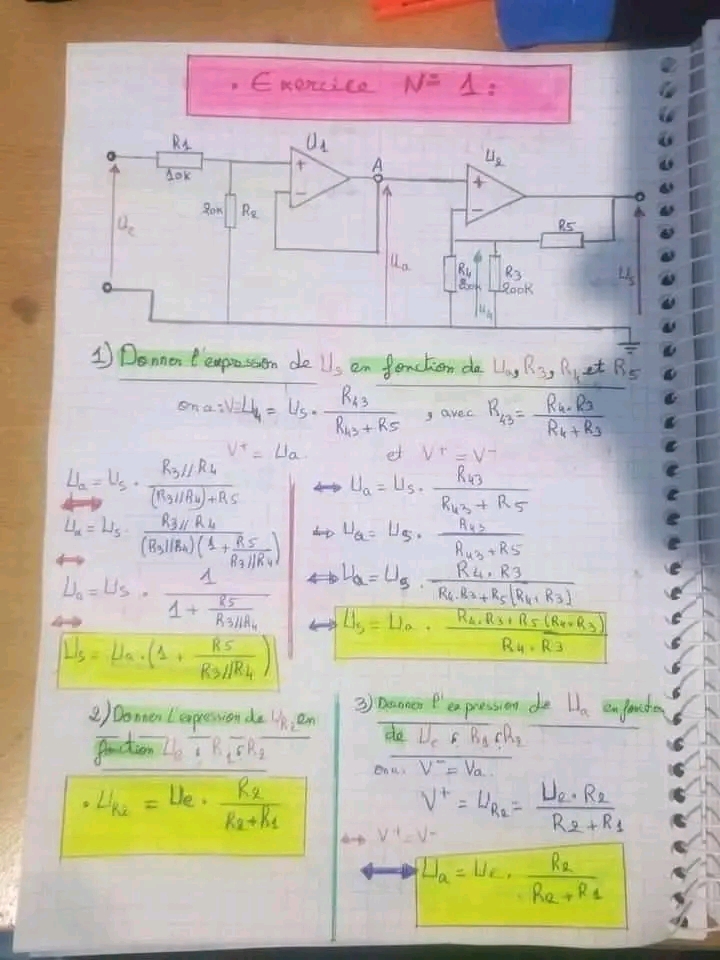 . Exercice N= 1 :
R1
10K
20K R2
U1
+
-
A
U2
+
-
R5
R4
200K
R3
200K
Ue
Ua
U4
Us
1) Donner l'expression de Us en fonction de Ua, R3, R4 et R5
on a : V-=U4 = Us · R43 / (R43 + R5) , avec R43 = R4 · R3 / (R4 + R3)
V+ = Ua et V+ = V-
Ua = Us · R3//R4 / ((R3//R4)+R5)
⇔ Ua = Us · R3//R4 / ((R3//R4)(1 + R5/(R3//R4)))
⇔ Ua = Us · 1 / (1 + R5/(R3//R4))
⇔ Us = Ua · (1 + R5/(R3//R4))
⇔ Ua = Us · R43 / (R43 + R5)
⇔ Ua = Us · R43 / (R43 + R5)
⇔ Ua = Us · R4 · R3 / (R4·R3 + R5(R4+R3))
⇔ Us = Ua · (R4·R3 + R5(R4+R3)) / (R4 · R3)
2) Donner l'expression de UR2 en
fonction Ue, R1 & R2
· UR2 = Ue · R2 / (R2+R1)
3) Donner l'expression de Ua en fonction
de Ue & R1 & R2
on a : V- = Va.
V+ = UR2 = Ue · R2 / (R2 + R1)
⇔ V+ = V-
⇔ Ua = Ue · R2 / (R2 + R1)